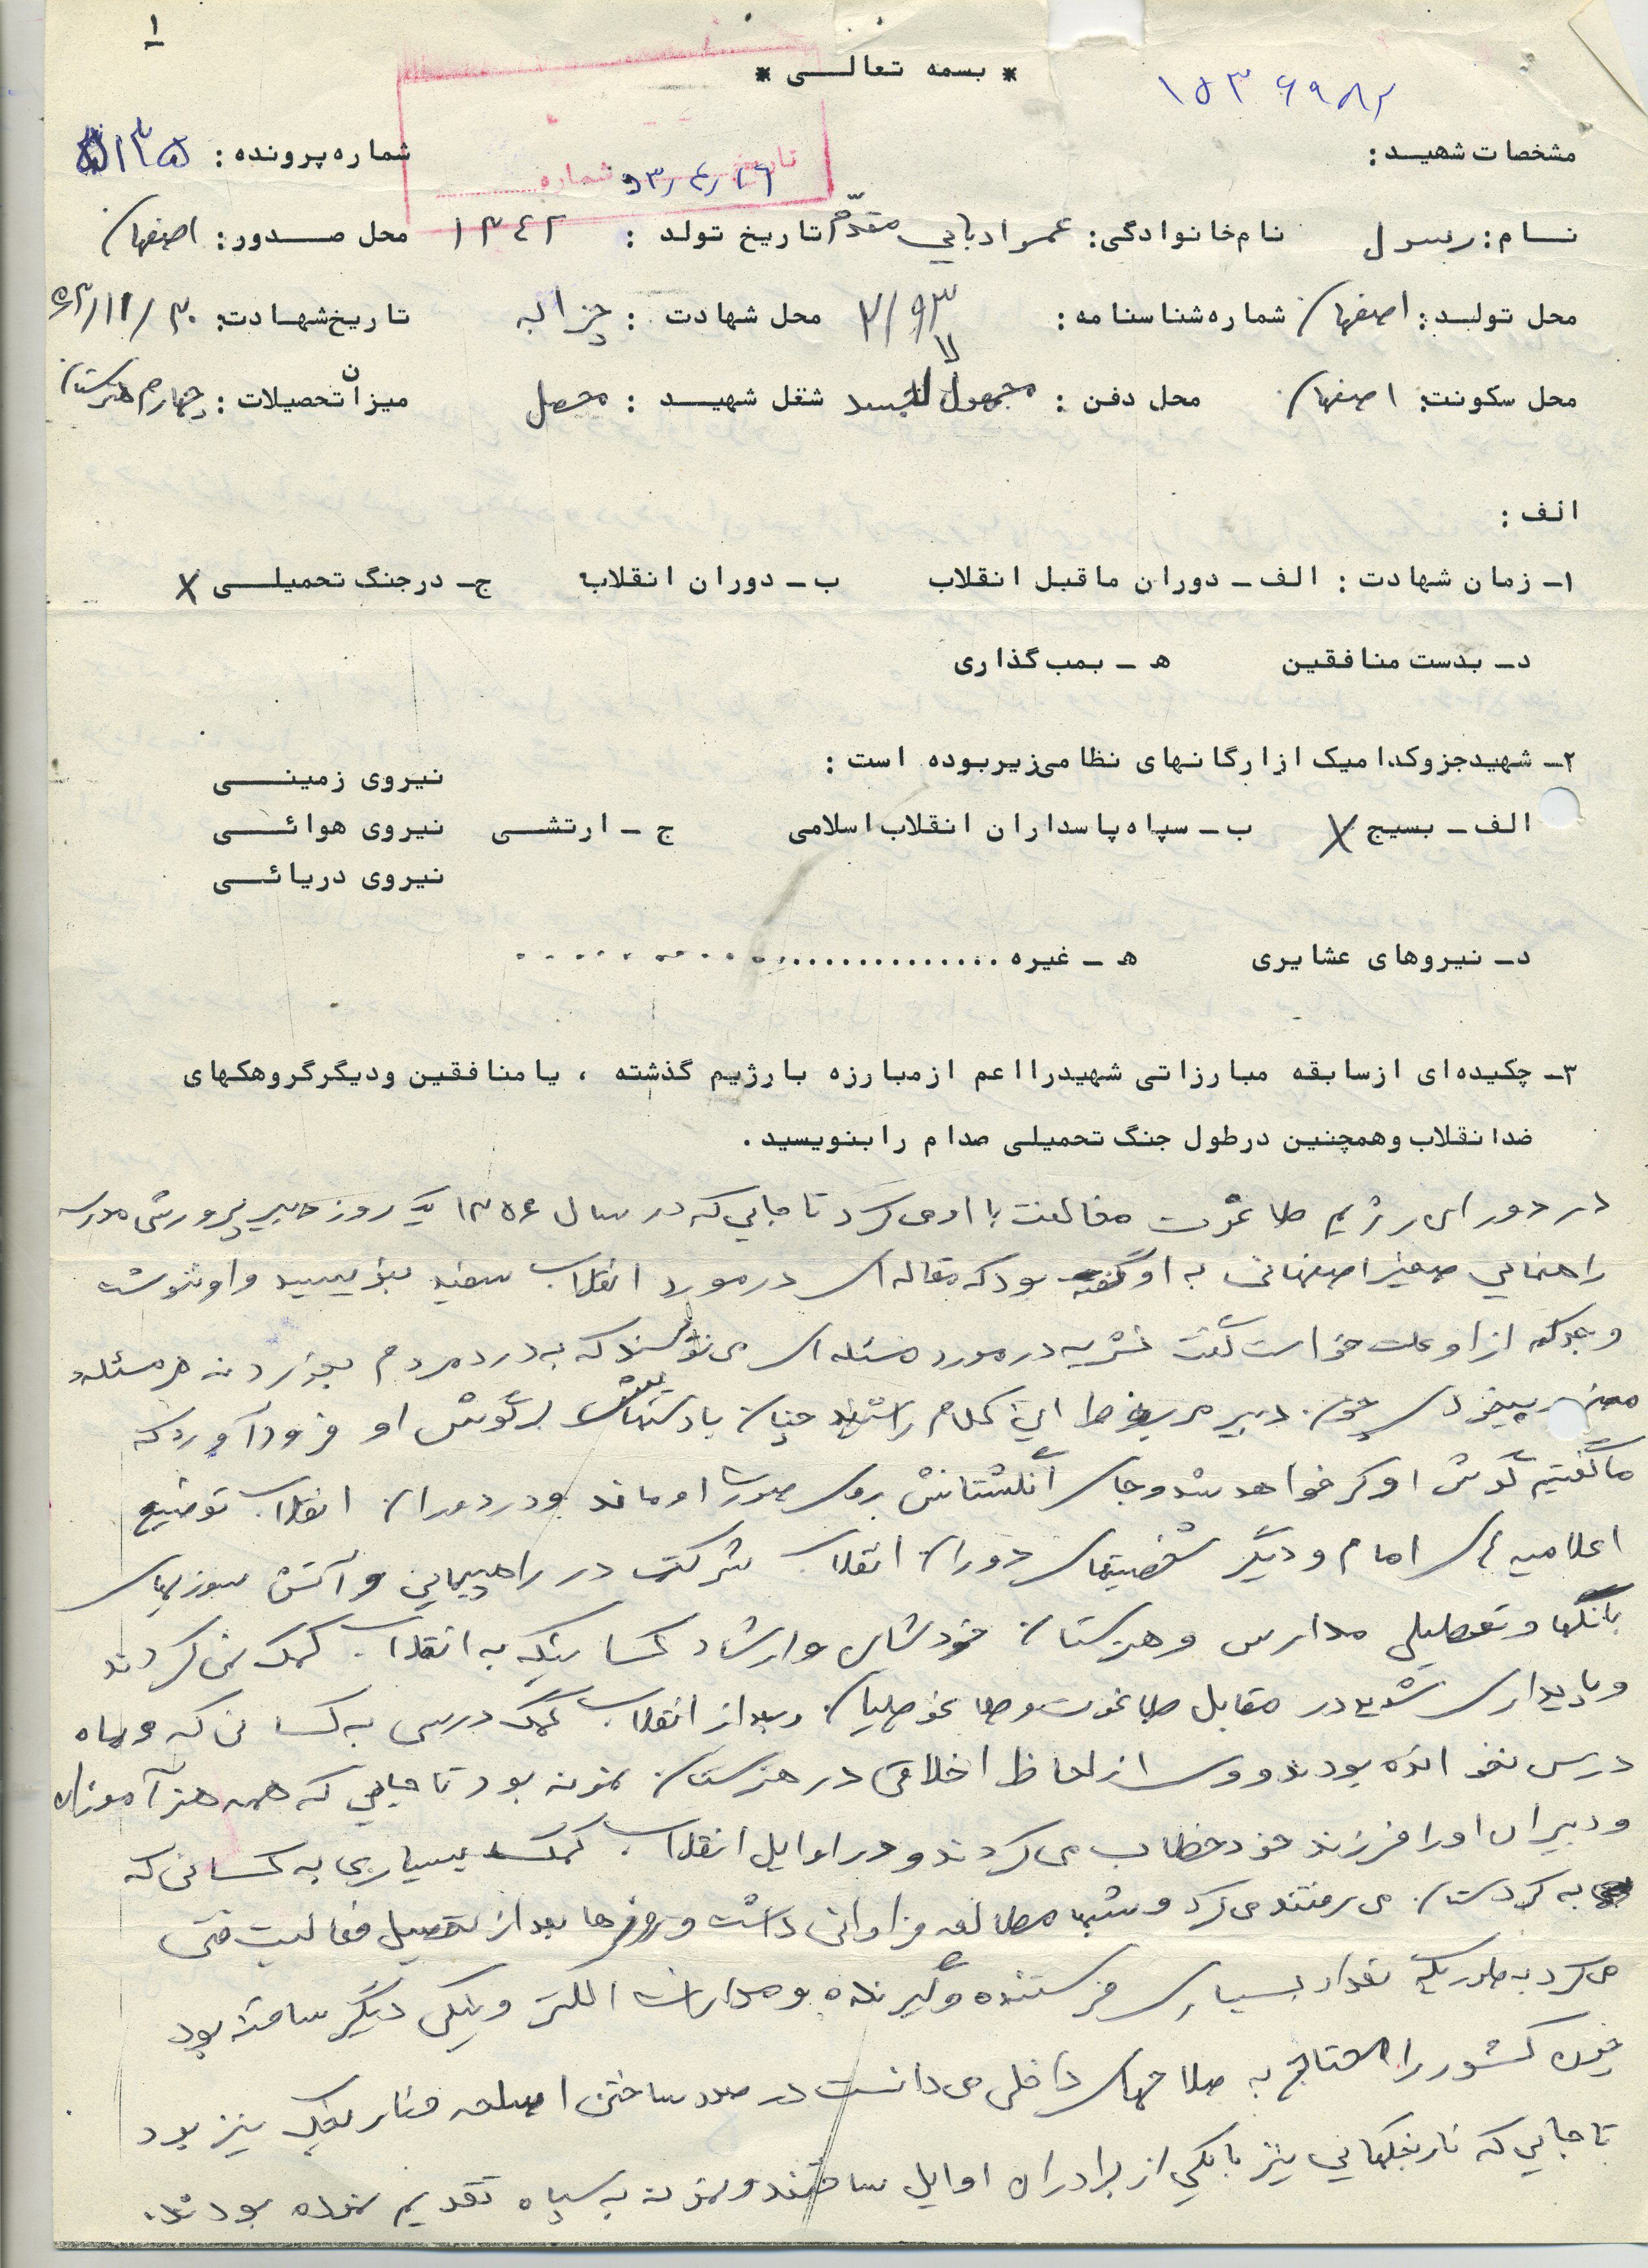 ۱
* بسمه تعالی *
۱۵۳۶۹۸۲
مشخصات شهید: شماره پرونده: ۵۱۳۵
تاریخ ۶۳/۴/۲۶ شماره
نام: رسول نام خانوادگی: مقدّم تاریخ تولد: ۱۳۴۲ محل صدور: اصفهان
محل تولد: اصفهان شماره شناسنامه: محل شهادت: چزابه تاریخ شهادت: ۳۰/۱۱/
محل سکونت: اصفهان محل دفن: مجهول الجسد شغل شهید: محصل میزان تحصیلات: چهارم هنرستان
الف:
۱- زمان شهادت: الف- دوران ماقبل انقلاب ب- دوران انقلاب ج- درجنگ تحمیلی X
د- بدست منافقین ه- بمب گذاری
۲- شهیدجزوکدامیک ازارگانهای نظامی زیربوده است:
نیروی زمینی
الف- بسیج X ب- سپاه پاسداران انقلاب اسلامی ج- ارتشی نیروی هوائی
نیروی دریائی
د- نیروهای عشایری ه- غیره ..............................
۳- چکیده‌ای ازسابقه مبارزاتی شهیدرااعم ازمبارزه بارژیم گذشته ، یامنافقین ودیگرگروهکهای
ضدانقلاب وهمچنین درطول جنگ تحمیلی صدام رابنویسید.
در دوران رژیم طاغوت مخالفت با او می‌کرد تا جایی که در سال ۱۳۵۶ یک روز دبیر پرورشی مدرسه
راهنمایی صغیر اصفهانی به او گفته بود که مقاله‌ای در مورد انقلاب سفید بنویسید و او ننوشت
و از او علت خواست گفت نشریه در مورد مسئله‌ای می‌نویسند که به درد مردم بخورد نه هر مسئله
دبیر مربوط این کلام را چنان با دستهایش بر گوش او فرود آورد که
ما گفتیم گوش او کر خواهد شد و جای انگشتانش روی صورت او ماند و در دوران انقلاب توضیع
اعلامیه‌های امام و دیگر شخصیتهای دوران انقلاب شرکت در راهپیمایی و آتش سوزیهای
بانکها و تعطیلی مدارس و هنرستان خودشان و ارشاد کسانیکه به انقلاب کمک نمی‌کردند
و پایداری در مقابل طاغوت و طاغوطیان و بعد از انقلاب کمک درسی به کسانی که ماه
درس نخوانده بودند و وی از لحاظ اخلاقی در هنرستان نمونه بود تا جایی که همه هنرآموزان
و دبیران او را فرزند خود خطاب می‌کردند و در اوایل انقلاب کمک بسیاری به کسانی که
به کردستان می‌رفتند می‌کرد و شبها مطالعه فراوانی داشت و روزها بعد از تحصیل فعالیت فنی
می‌کرد به طوریکه تعداد بسیاری فرستنده و گیرنده و مدارات الکترونیکی دیگر ساخته بود
چون کشور را محتاج به سلاحهای داخلی می‌دانست در صدد ساختن اسلحه نیز بود
تا جایی که نارنجکهایی نیز با یکی از برادران اوایل ساختند و نمونه به سپاه تقدیم نموده بودند.